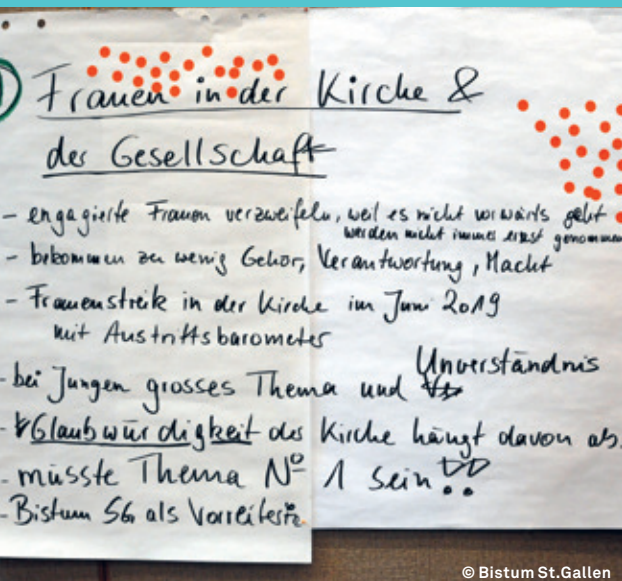 Frauen in der Kirche &
der Gesellschaft
- engagierte Frauen verzweifeln, weil es nicht vorwärts geht
werden nicht immer ernst genommen
- bekommen zu wenig Gehör, Verantwortung, Macht
- Frauenstreik in der Kirche im Juni 2019
mit Austrittsbarometer
- bei Jungen grosses Thema und Unverständnis
- Glaubwürdigkeit der Kirche hängt davon ab.
- müsste Thema No 1 sein!!
- Bistum SG als Vorreiterin
© Bistum St.Gallen